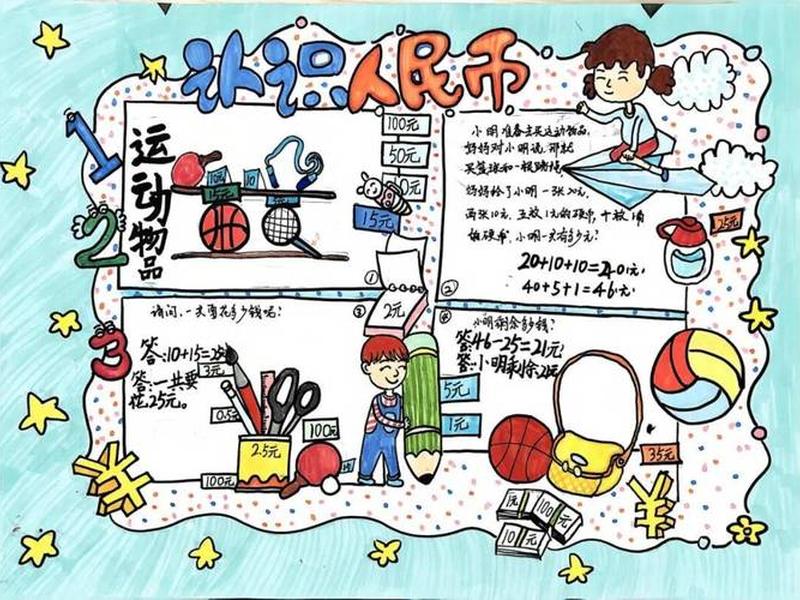 认识人民币
1
2
3
运动物品
100元
50元
15元
10元
10
15元
①
小明准备去买运动物品,
妈妈对小明说,那就
买篮球和一根跳绳
妈妈给了小明一张20元,
两张10元,五枚1元的硬币,十枚1角
的硬币,小明一共有多少元?
20+10+10=40(元)
40+5+1=46(元)
②
25元
请问,一共要花多少钱呢?
③
答:10+15=25
答:一共要
花25元。
3元
0.5元
25元
100元
100元
2元
小明剩余多少钱?
答46-25=21元
答:小明剩余21元
5元
1元
35元
100元
10元